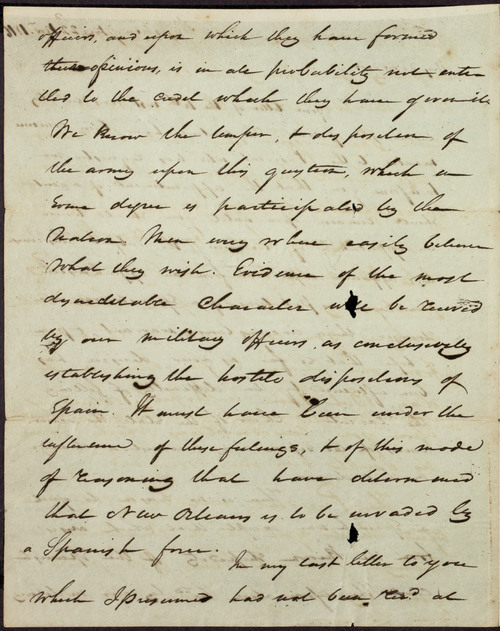 officers, and upon which they have formed
opinions, is in all probability not enti-
tled to the credit which they have given it.
We know the temper, & disposition of
the army upon this question, which in
some degree is participated by the
Nation. Men every where easily believe
what they wish. Evidence of the most
discreditable character will be received
by our military officers as conclusively
establishing the hostile dispositions of
Spain. It must have been under the
influence of these feelings, & of this mode
of reasoning that have determined
that New Orleans is to be invaded by
a Spanish force.
In my last letter to you
which I presumed had not been recd. at